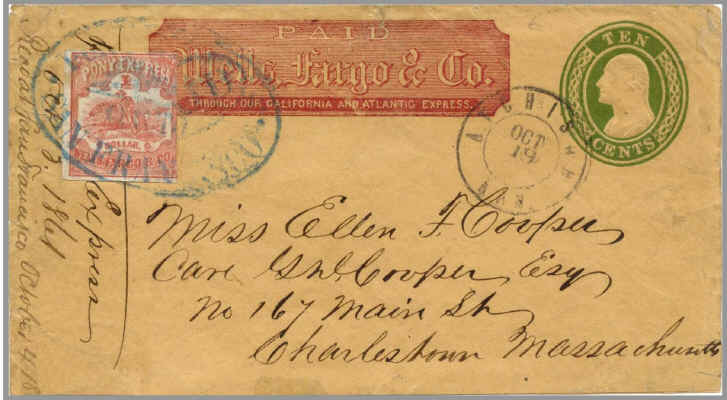 PAID
Wells, Fargo & Co.
THROUGH OUR CALIFORNIA AND ATLANTIC EXPRESS.
TEN
CENTS
PONY EXPRESS
1
DOLLAR
WELLS FARGO & CO.
ATCHISON
OCT
19
Miss Ellen F. Cooper
Care Cooper, Esq
No 167 Main St
Charlestown Massachusetts
Express
San Francisco October
1861